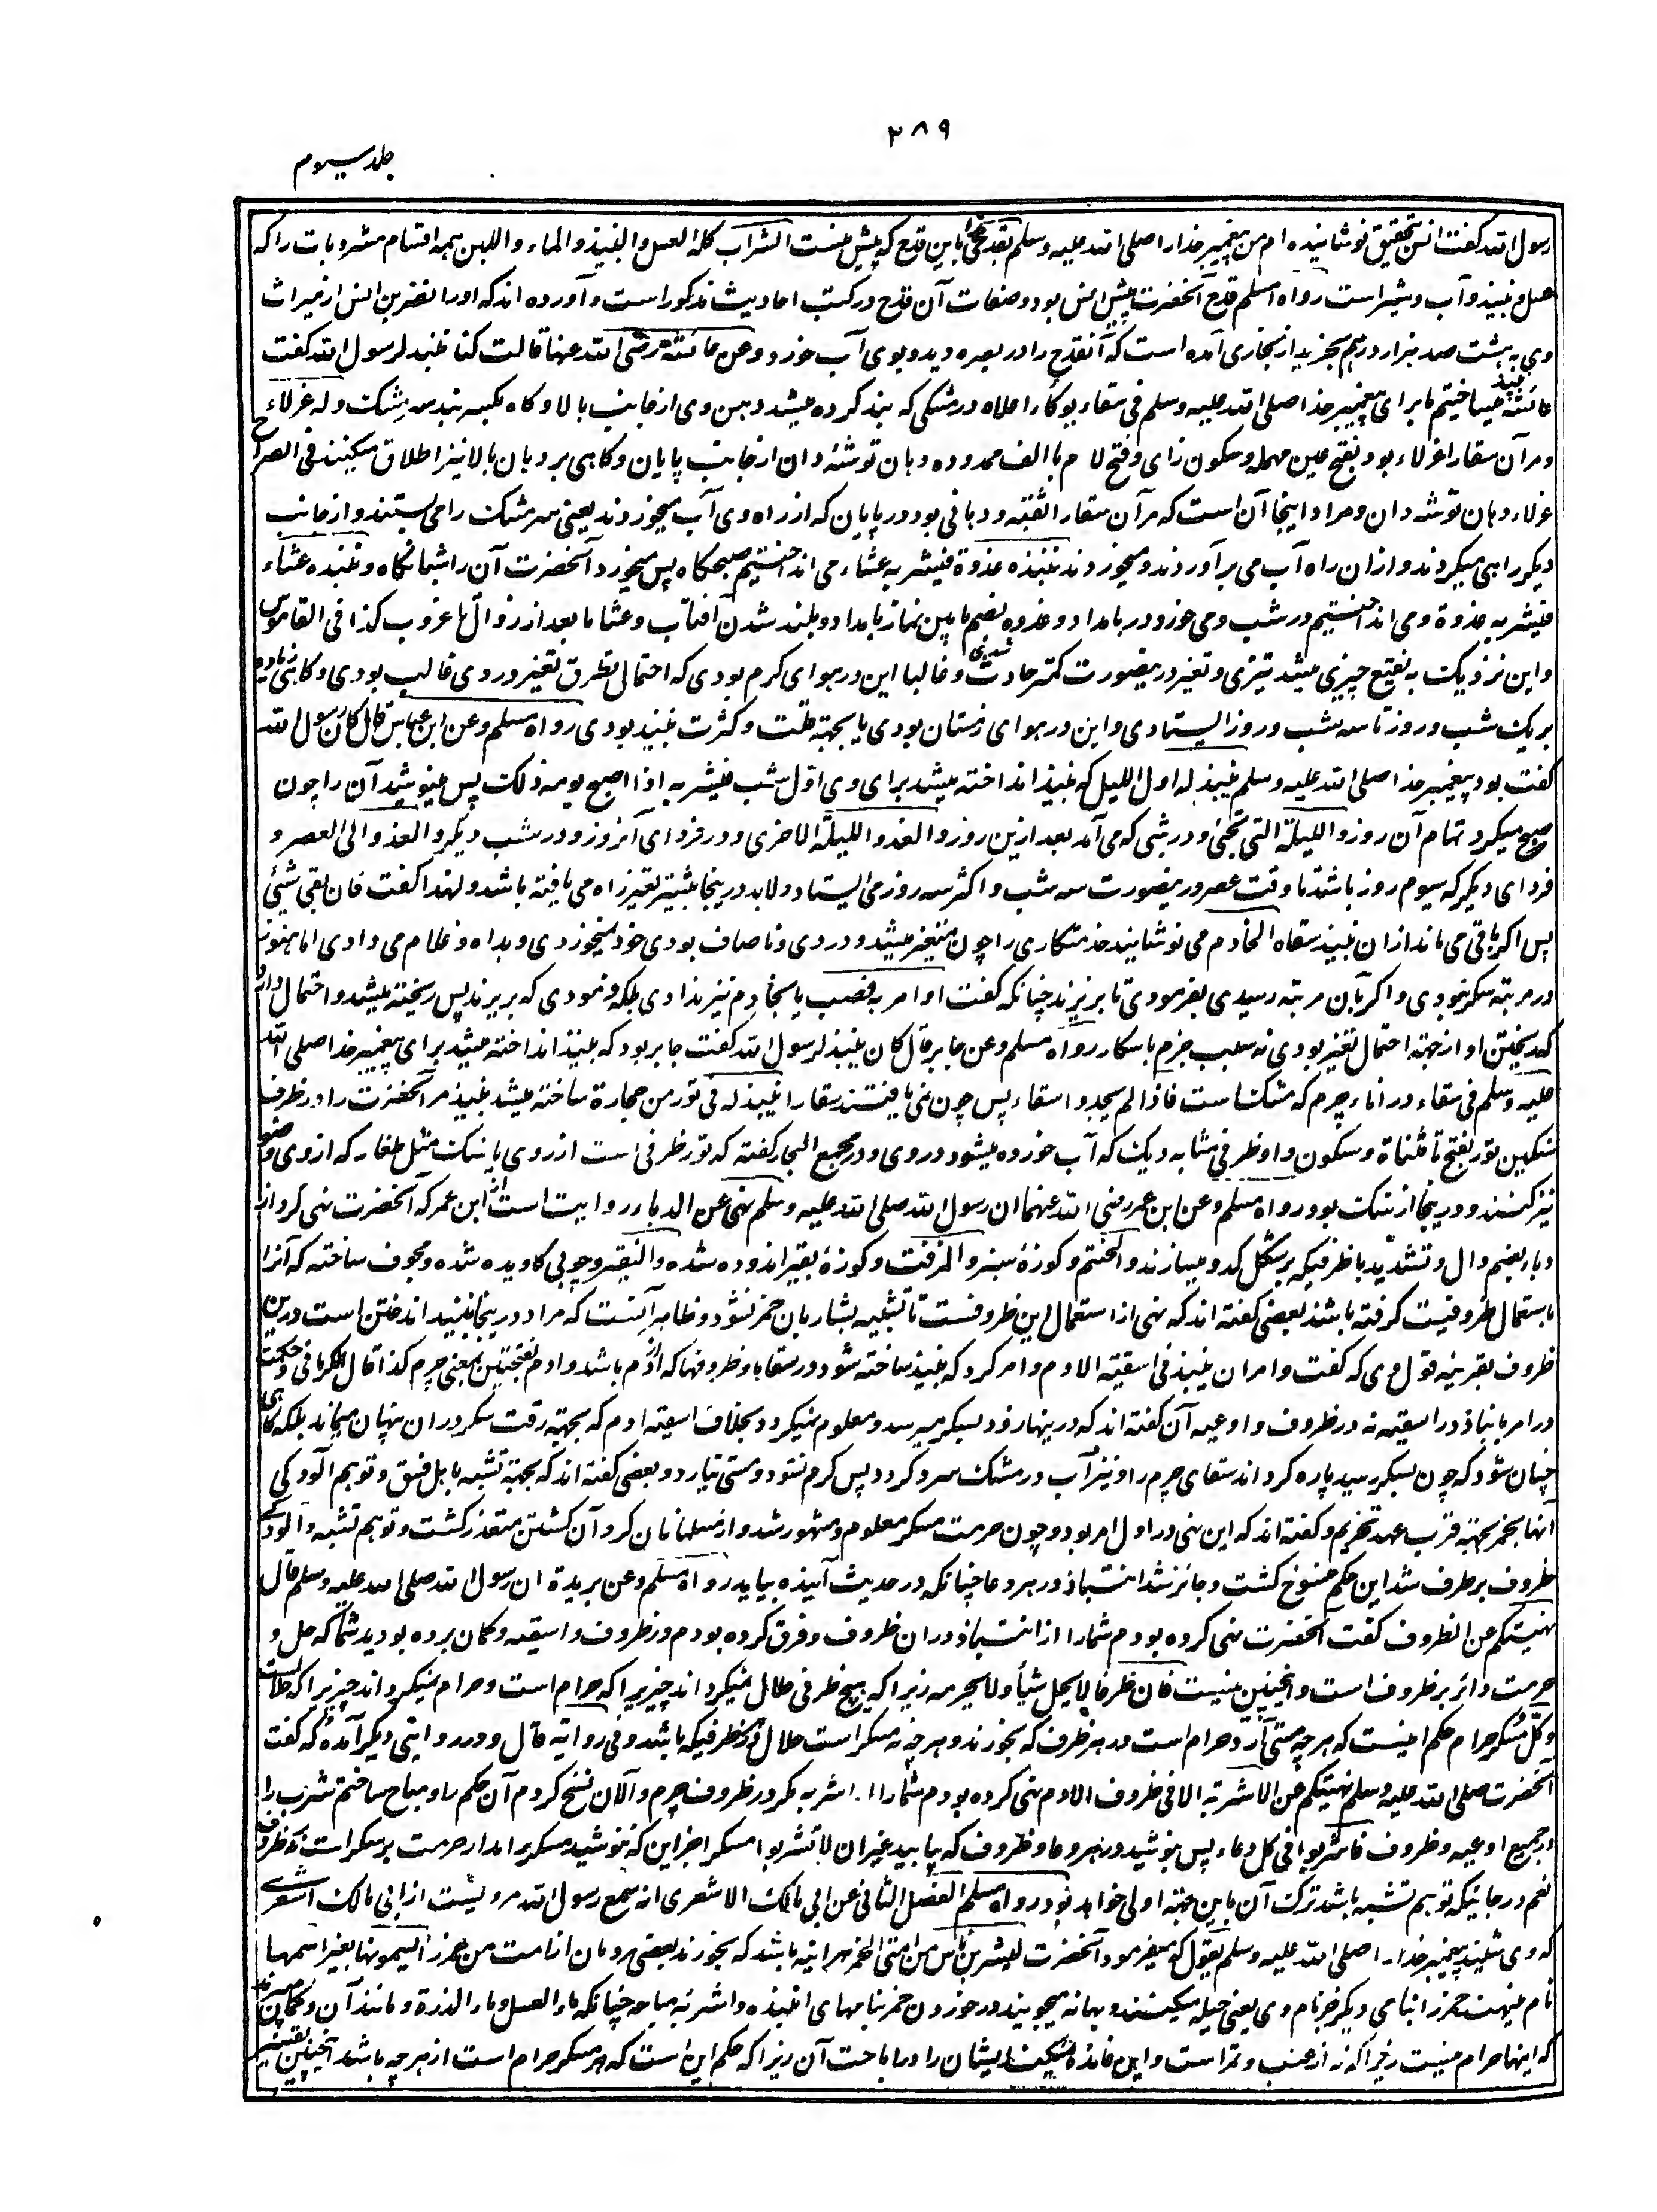 ۲۸۹
جلد سیوم
رسول الله گفت انس تحقیق نوشانیده ام من پیغمبر خدا را صلی الله علیه وسلم بقدحی هذا باین قدح که پیش منست الشراب کله العسل والنبیذ والماء واللبن همه اقسام مشروبات را که
عسل و نبیذ و آب و شیر است رواه مسلم قدح آنحضرت پیش انس بود و صفات آن قدح در کتب احادیث مذکور است و آورده اند که او را نضر بن انس از میراث
وی به هشت صد هزار درهم بخرید از بخاری آمده است که آنقدح را در بصره دید و بوی آب خورد وعن عائشة رضی الله عنها قالت کنا ننبذ لرسول الله گفت
عائشه میساختیم نبیذ ما برای پیغمبر خدا صلی الله علیه وسلم فی سقاء یوکأ اعلاه در مشکی که بند کرده میشد دهن وی از جانب بالا وکاء بکسر بند سر مشک وله عزلاء
و مر آن سقا را عزلاء بود بفتح عین مهمله و سکون زای و فتح لام با الف ممدوده دهان توشه دان از جانب پایان و گاهی بر دهان بالا نیز اطلاق میکنند فی الصراح
عزلاء دهان توشه دان و مراد اینجا آن است که مر آن سقا را ثقبه و دهانی بود در پایان که از راه وی آب میخوردند یعنی سر مشک را می بستند و از جانب
دیگر راهی میکردند و ازان راه آب می برآوردند و میخوردند ننبذه غدوة فیشربه عشاء می انداختیم صبحگاه پس میخورد آنحضرت آن را شبانگاه وننبذه عشاء
فیشربه غدوة و می انداختیم در شب و می خورد در بامداد و غدوه بضم ما بین نماز بامداد و بلند شدن آفتاب و عشا ما بعد از زوال تا غروب کذا فی القاموس
و این نزدیک به نقیع چیزی میشد تیزی و تغیر درینصورت کمتر حادث شدی و غالبا این در هوای گرم بودی که احتمال تطرق تغیر در وی غالب بودی و گاهی زیاده
بر یک شب و روز تا سه شب و روز ایستادی و این در هوای زمستان بودی یا بجهة قلت و کثرت نبیذ بودی رواه مسلم وعن ابن عباس قال کان رسول الله
گفت بود پیغمبر خدا صلی الله علیه وسلم ینبذ له اول اللیل که نبیذ انداخته میشد برای وی اول شب فیشربه اذا اصبح یومه ذلک پس مینوشید آن را چون
صبح میکرد تمام آن روز واللیلة التی تجئ و در شبی که می آمد بعد ازین روز والغد واللیلة الاخری و در فردای آنروز و در شب دیگر والغد الی العصر و
فردای دیگر که سیوم روز باشد تا وقت عصر درینصورت سه شب و اکثر سه روز می ایستاد و لابد درینجا بیشتر تغیر راه می یافته باشد و لهذا گفت فان بقی شیئ
پس اگر باقی می ماند ازان نبیذ سقاه الخادم می نوشانید خدمتگاری را چون متغیر میشد و دردی و ناصاف بودی خود نمیخوردی و بداه و غلام می دادی اما هنوز
در مرتبه سکر نبودی و اگر بآن مرتبه رسیدی بفرمودی تا بریزند چنانکه گفت او امر به فصب یا بخادم نیز ندادی بلکه فرمودی که بریزند پس ریخته میشد و احتمال دارد
که ریختن او از جهة احتمال تغیر بودی نه سبب جزم باسکار رواه مسلم وعن جابر قال کان ینبذ لرسول الله گفت جابر بود که نبیذ انداخته میشد برای پیغمبر خدا صلی الله
علیه وسلم فی سقاء در اناء چرم که مشک است فاذا لم یجدوا سقاء پس چون نمی یافتند سقا را ینبذ له فی تور من حجارة ساخته میشد نبیذ مر آنحضرت را در ظرف
سنگین تور بفتح تا مثناة و سکون واو ظرفی مشابه دیگ که آب خورده میشود در وی و در مجمع البحار گفته که تور ظرفی است از روی یا سنگ مثل طغار که از وی وضو
نیز کنند و درینجا از سنگ بود رواه مسلم وعن ابن عمر رضی الله عنهما ان رسول الله صلی الله علیه وسلم نهی عن الدباء روایت است از ابن عمر که آنحضرت نهی کرد از
دباء بضم دال و تشدید با ظرفیکه بر شکل کدو میسازند والحنتم و کوزهٔ سبز والمزفت و کوزهٔ بقیر اندوده شده والنقیر و چوبی کاویده شده و مجوف ساخته که آنرا
باستعمال ظرفیت گرفته باشند بعضی گفته اند که نهی از استعمال این ظروفست تا تشبیه بشاربان خمر نشود و ظاهر آنست که مراد درینجا نبیذ انداختن است درین
ظروف بقرینه قول وی که گفت وامر ان ینبذ فی اسقیة الادم و امر کرد که نبیذ ساخته شود در سقاها و ظروفها که از ادم باشد و ادم بفتحتین بمعنی چرم کذا قال الکرمانی و حکمت
در امر بانباذ در اسقیه نه در ظروف و اوعیه آن گفته اند که درینها زود بسکر میرسد و معلوم نمیگردد بخلاف اسقیه ادم که بجهة رقت سکر دران پنهان نمیماند بلکه گاهی
چنان شود که چون بسکر رسید پاره گرداند سقای چرم را و نیز آب در مشک سرد گردد پس گرم نشود و مستی نیارد و بعضی گفته اند که بجهة تشبه باهل فسق و توهم آلودگی
آنها بخمر بجهة قرب عهد تحریم و گفته اند که این نهی در اول امر بود و چون حرمت مسکر معلوم و مشهور شد و از مسلمانان گرد آن گشتن متعذر گشت و توهم تشبه و آلودگی
ظروف برطرف شد این حکم منسوخ گشت و جائز شد انتباذ در هر وعا چنانکه در حدیث آینده بیاید رواه مسلم وعن بریدة ان رسول الله صلی الله علیه وسلم قال
نهیتکم عن الظروف گفت آنحضرت نهی کرده بودم شما را از انتباذ دران ظروف و فرق کرده بودم در ظروف و اسقیه و گمان برده بودید شما که حل و
حرمت دائر بر ظروف است و انچنین نیست فان ظرفا لا یحل شیأ ولا یحرمه زیرا که هیچ ظرفی حلال نمیگرداند چیزیرا که حرام است و حرام نمیگرداند چیزیرا که حلالست
وکل مسکر حرام حکم اینست که هر چه مستی آرد حرام است در هر ظرف که بخورند و هر چه نه مسکر است حلال در هر ظرفیکه باشد وفی روایة قال و در روایتی دیگر آمده که گفت
آنحضرت صلی الله علیه وسلم نهیتکم عن الاشربة الا فی ظروف الادم نهی کرده بودم شما را از اشربه مگر در ظروف چرم و الآن نسخ کردم آن حکم را و مباح ساختم شرب را
در جمیع اوعیه و ظروف فاشربوا فی کل وعاء پس بنوشید در هر وعا و ظروف که بیابید غیر ان لا تشربوا مسکرا جز این که ننوشید مسکر را مدار حرمت بر مسکر است نه ظروف
نعم در جائیکه توهم تشبه باشد ترک آن باین جهة اولی خواهد بود رواه مسلم الفصل الثانی عن ابی مالک الاشعری انه سمع رسول الله مرویست از ابی مالک اشعری
که وی شنید پیغمبر خدا را صلی الله علیه وسلم یقول که میفرمود آنحضرت لیشربن ناس من امتی الخمر هر آینه باشد که بخورند بعضی مردمان از امت من خمر را یسمونها بغیر اسمها
نام مینهند خمر را بنامی دیگر جز نام وی یعنی حیله میکنند و بهانه میجویند در خوردن خمر بنامهای انبذه و اشربه مباحه چنانکه ماء العسل و ماء الذرة و مانند آن و گمان میبرند
که اینها حرام نیست زیرا که نه از عنب و تمر است و این فائده نمیکند ایشان را در اباحت آن زیرا که حکم این است که هر مسکر حرام است از هر چه باشد انچنین تفسیر